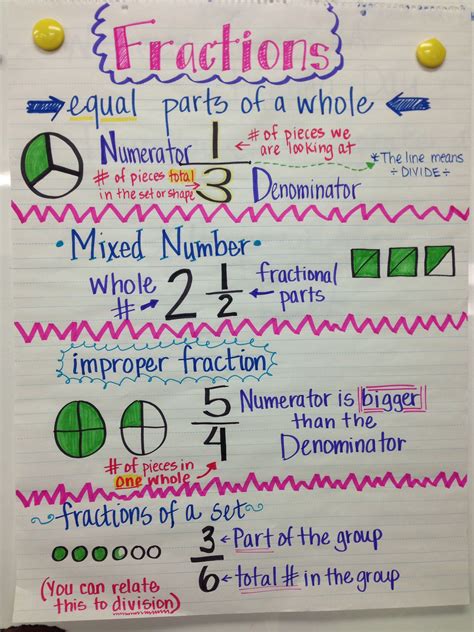 Fractions
equal parts of a whole
Numerator 1 # of pieces we
are looking at
# of pieces total
in the set or shape 3 Denominator
*The line means
÷ DIVIDE ÷
• Mixed Number •
Whole
# → 2 1/2 ← fractional
parts
improper fraction
5/4 Numerator is bigger
than the
Denominator
# of pieces in
one whole
fractions of a set
3 ← Part of the group
6 ← total # in the group
(You can relate
this to division)